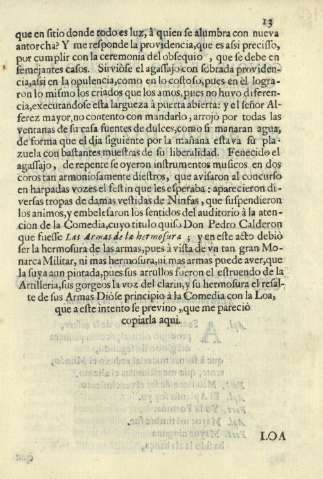 13
que en sitio donde todo es luz, à quien se alumbra con nueva
antorcha? Y me responde la providencia, que es assi precisso,
por cumplir con la ceremonia del obsequio, que se debe en
semejantes casos. Sirviòse el agassajo con sobrada providen-
cia, assi en la opulencia, como en lo costoso, pues en èl logra-
ron lo mismo los criados que los amos, pues no huvo diferen-
cia, executandose esta largueza à puerta abierta: y el señor Al-
ferez mayor, no contento con mandarlo, arrojò por todas las
ventanas de su casa fuentes de dulces, como si manaran agua,
de forma que el dia siguiente por la mañana estava su pla-
zuela con bastantes muestras de su liberalidad. Fenecido el
agassajo, de repente se oyeron instrumentos musicos en dos
coros tan armoniosamente diestros, que avisaron al concurso
en harpadas vozes el festin que les esperaba: aparecieron di-
versas tropas de damas vestidas de Ninfas, que suspendieron
los animos, y embelesaron los sentidos del auditorio à la aten-
cion de la Comedia, cuyo titulo quiso Don Pedro Calderon
que fuesse Las Armas de la hermosura; y en este acto debiò
ser la hermosura de las armas, pues à vista de vn tan gran Mo-
narca Militar, ni mas hermosura, ni mas armas puede aver, que
la suya aun pintada, pues sus arrullos fueron el estruendo de la
Artilleria, sus gorgeos la voz del clarin, y su hermosura el resal-
te de sus Armas Diòse principio à la Comedia con la Loa,
que a este intento se previno, que me pareciò
copiarla aqui.
LOA